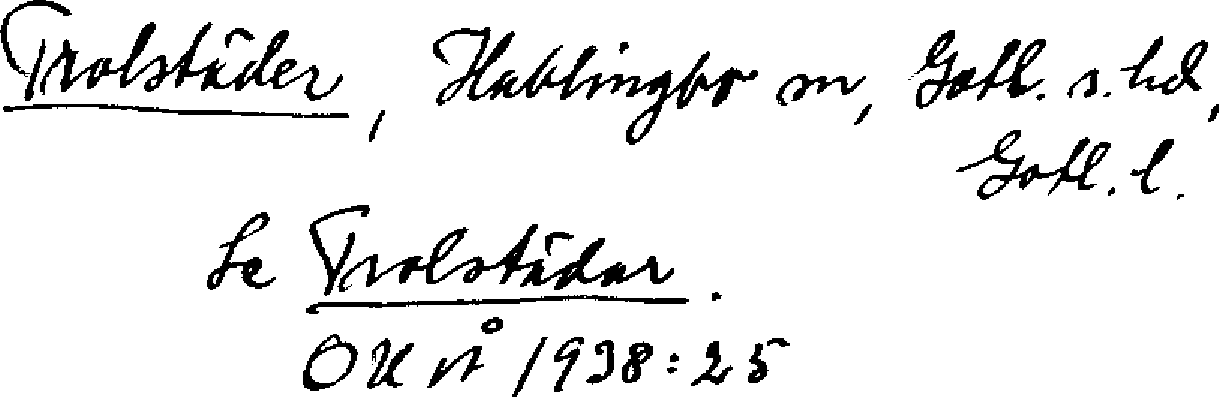 Trolstäder, Hablingbo sn, Gotl. s. hd,
Gotl. l.
Se Trolstädar.
OUÅ 1938:25